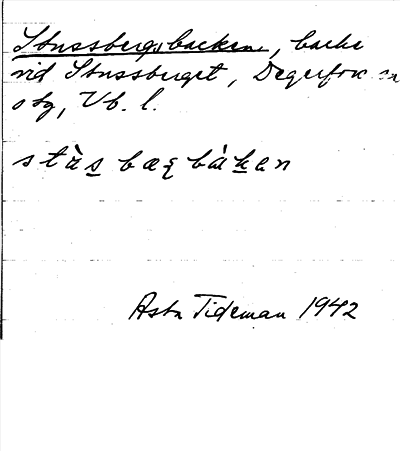 Stussbergsbacken, backe
vid Stussberget, Degerfors sn
obg, Vb. l.
stàs bæŗ bàken
Asta Tideman 1942